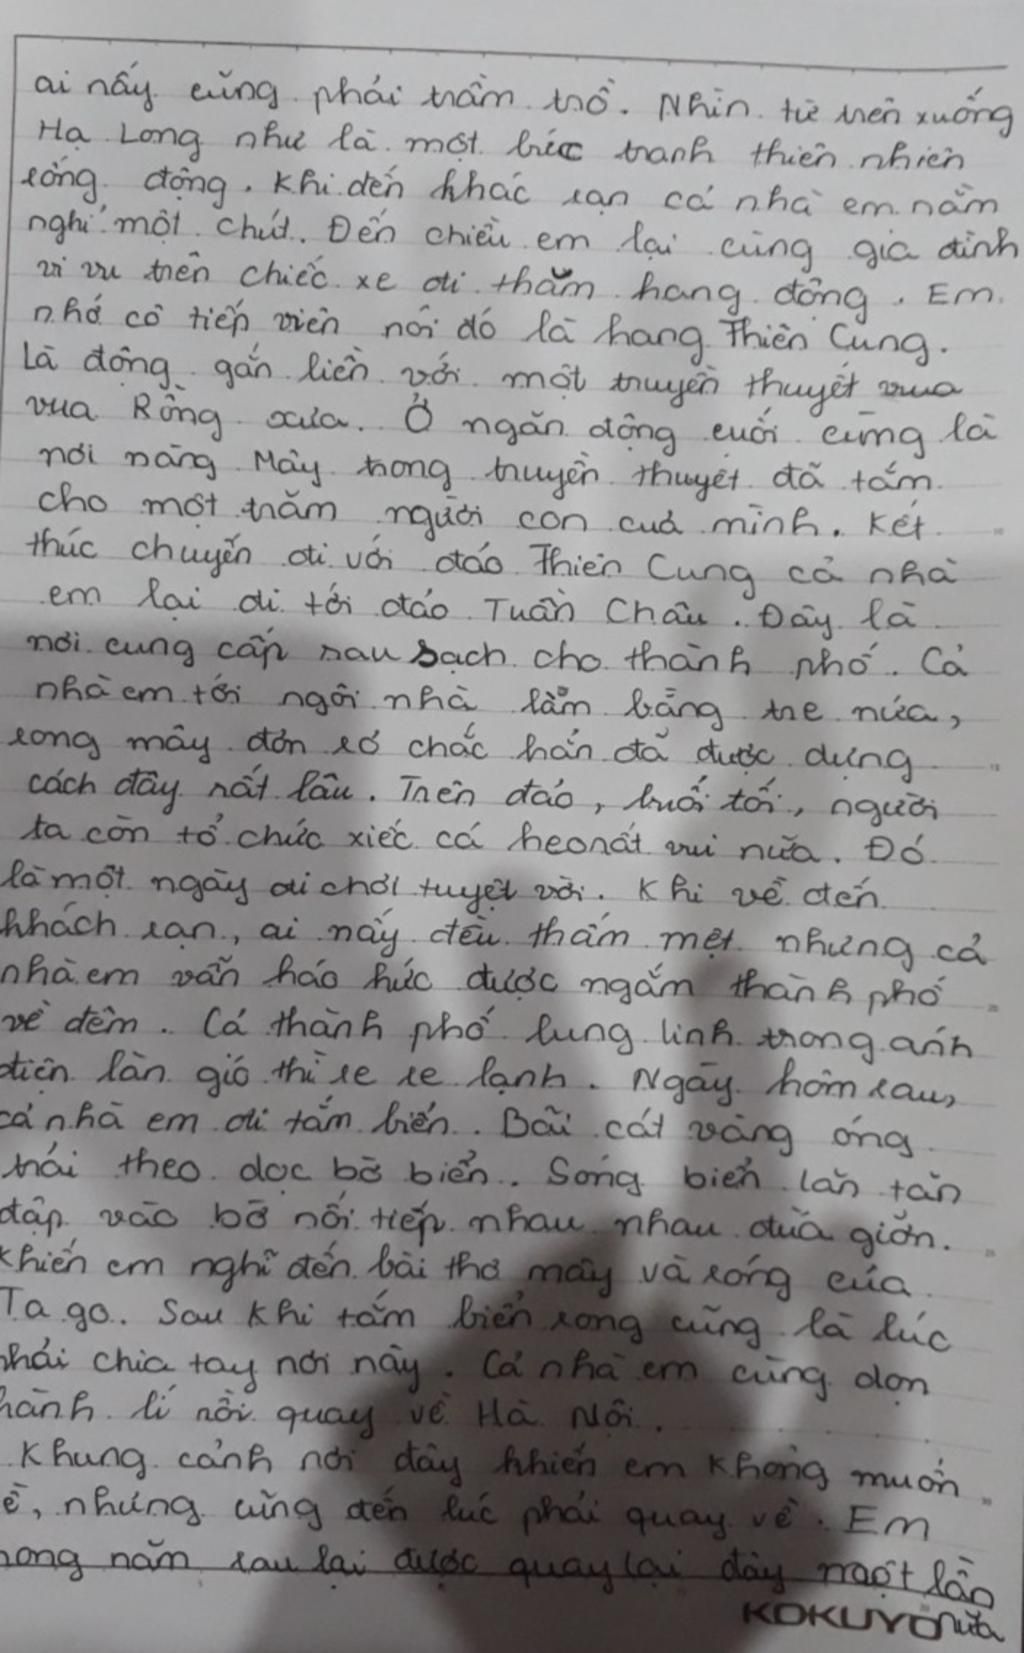 ai nấy cũng phải trầm trồ. Nhìn từ trên xuống
Hạ Long như là một bức tranh thiên nhiên
sống động. Khi đến khác sạn cả nhà em nằm
nghỉ một chút. Đến chiều em lại cùng gia đình
vi vu trên chiếc xe đi thăm hang động. Em
nhớ cô tiếp viên nói đó là hang Thiên Cung.
Là động gắn liền với một truyền thuyết vua
vua Rồng xưa. Ở ngăn động cuối cùng là
nơi nàng Mây trong truyền thuyết đã tắm
cho một trăm người con của mình. Kết
thúc chuyến đi với đảo Thiên Cung cả nhà
em lại đi tới đảo Tuần Châu. Đây là
nơi cung cấp rau sạch cho thành phố. Cả
nhà em tới ngôi nhà làm bằng tre nứa,
song mây đơn sơ chắc hẳn đã được dựng
cách đây rất lâu. Trên đảo, buổi tối, người
ta còn tổ chức xiếc cá heo rất vui nữa. Đó
là một ngày đi chơi tuyệt vời. Khi về đến
khách sạn, ai nấy đều thấm mệt nhưng cả
nhà em vẫn háo hức được ngắm thành phố
về đêm. Cả thành phố lung linh trong ánh
điện làn gió thì se se lạnh. Ngày hôm sau,
cả nhà em đi tắm biển. Bãi cát vàng óng
trải theo dọc bờ biển. Sóng biển lăn tăn
đập vào bờ nối tiếp nhau nhau đùa giỡn.
Khiến em nghĩ đến bài thơ mây và sóng của
Ta go. Sau khi tắm biển song cũng là lúc
phải chia tay nơi này. Cả nhà em cùng dọn
hành lí rồi quay về Hà Nội.
Khung cảnh nơi đây khiến em không muốn
về, nhưng cũng đến lúc phải quay về. Em
mong năm sau lại được quay lại đây một lần
nữa
KOKUYO